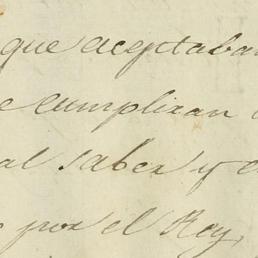 que aceptaban
cumpliran
al saber y
por el Rey,